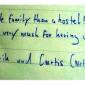 e family than a hostel!
very much for having u
ik and Curtis (